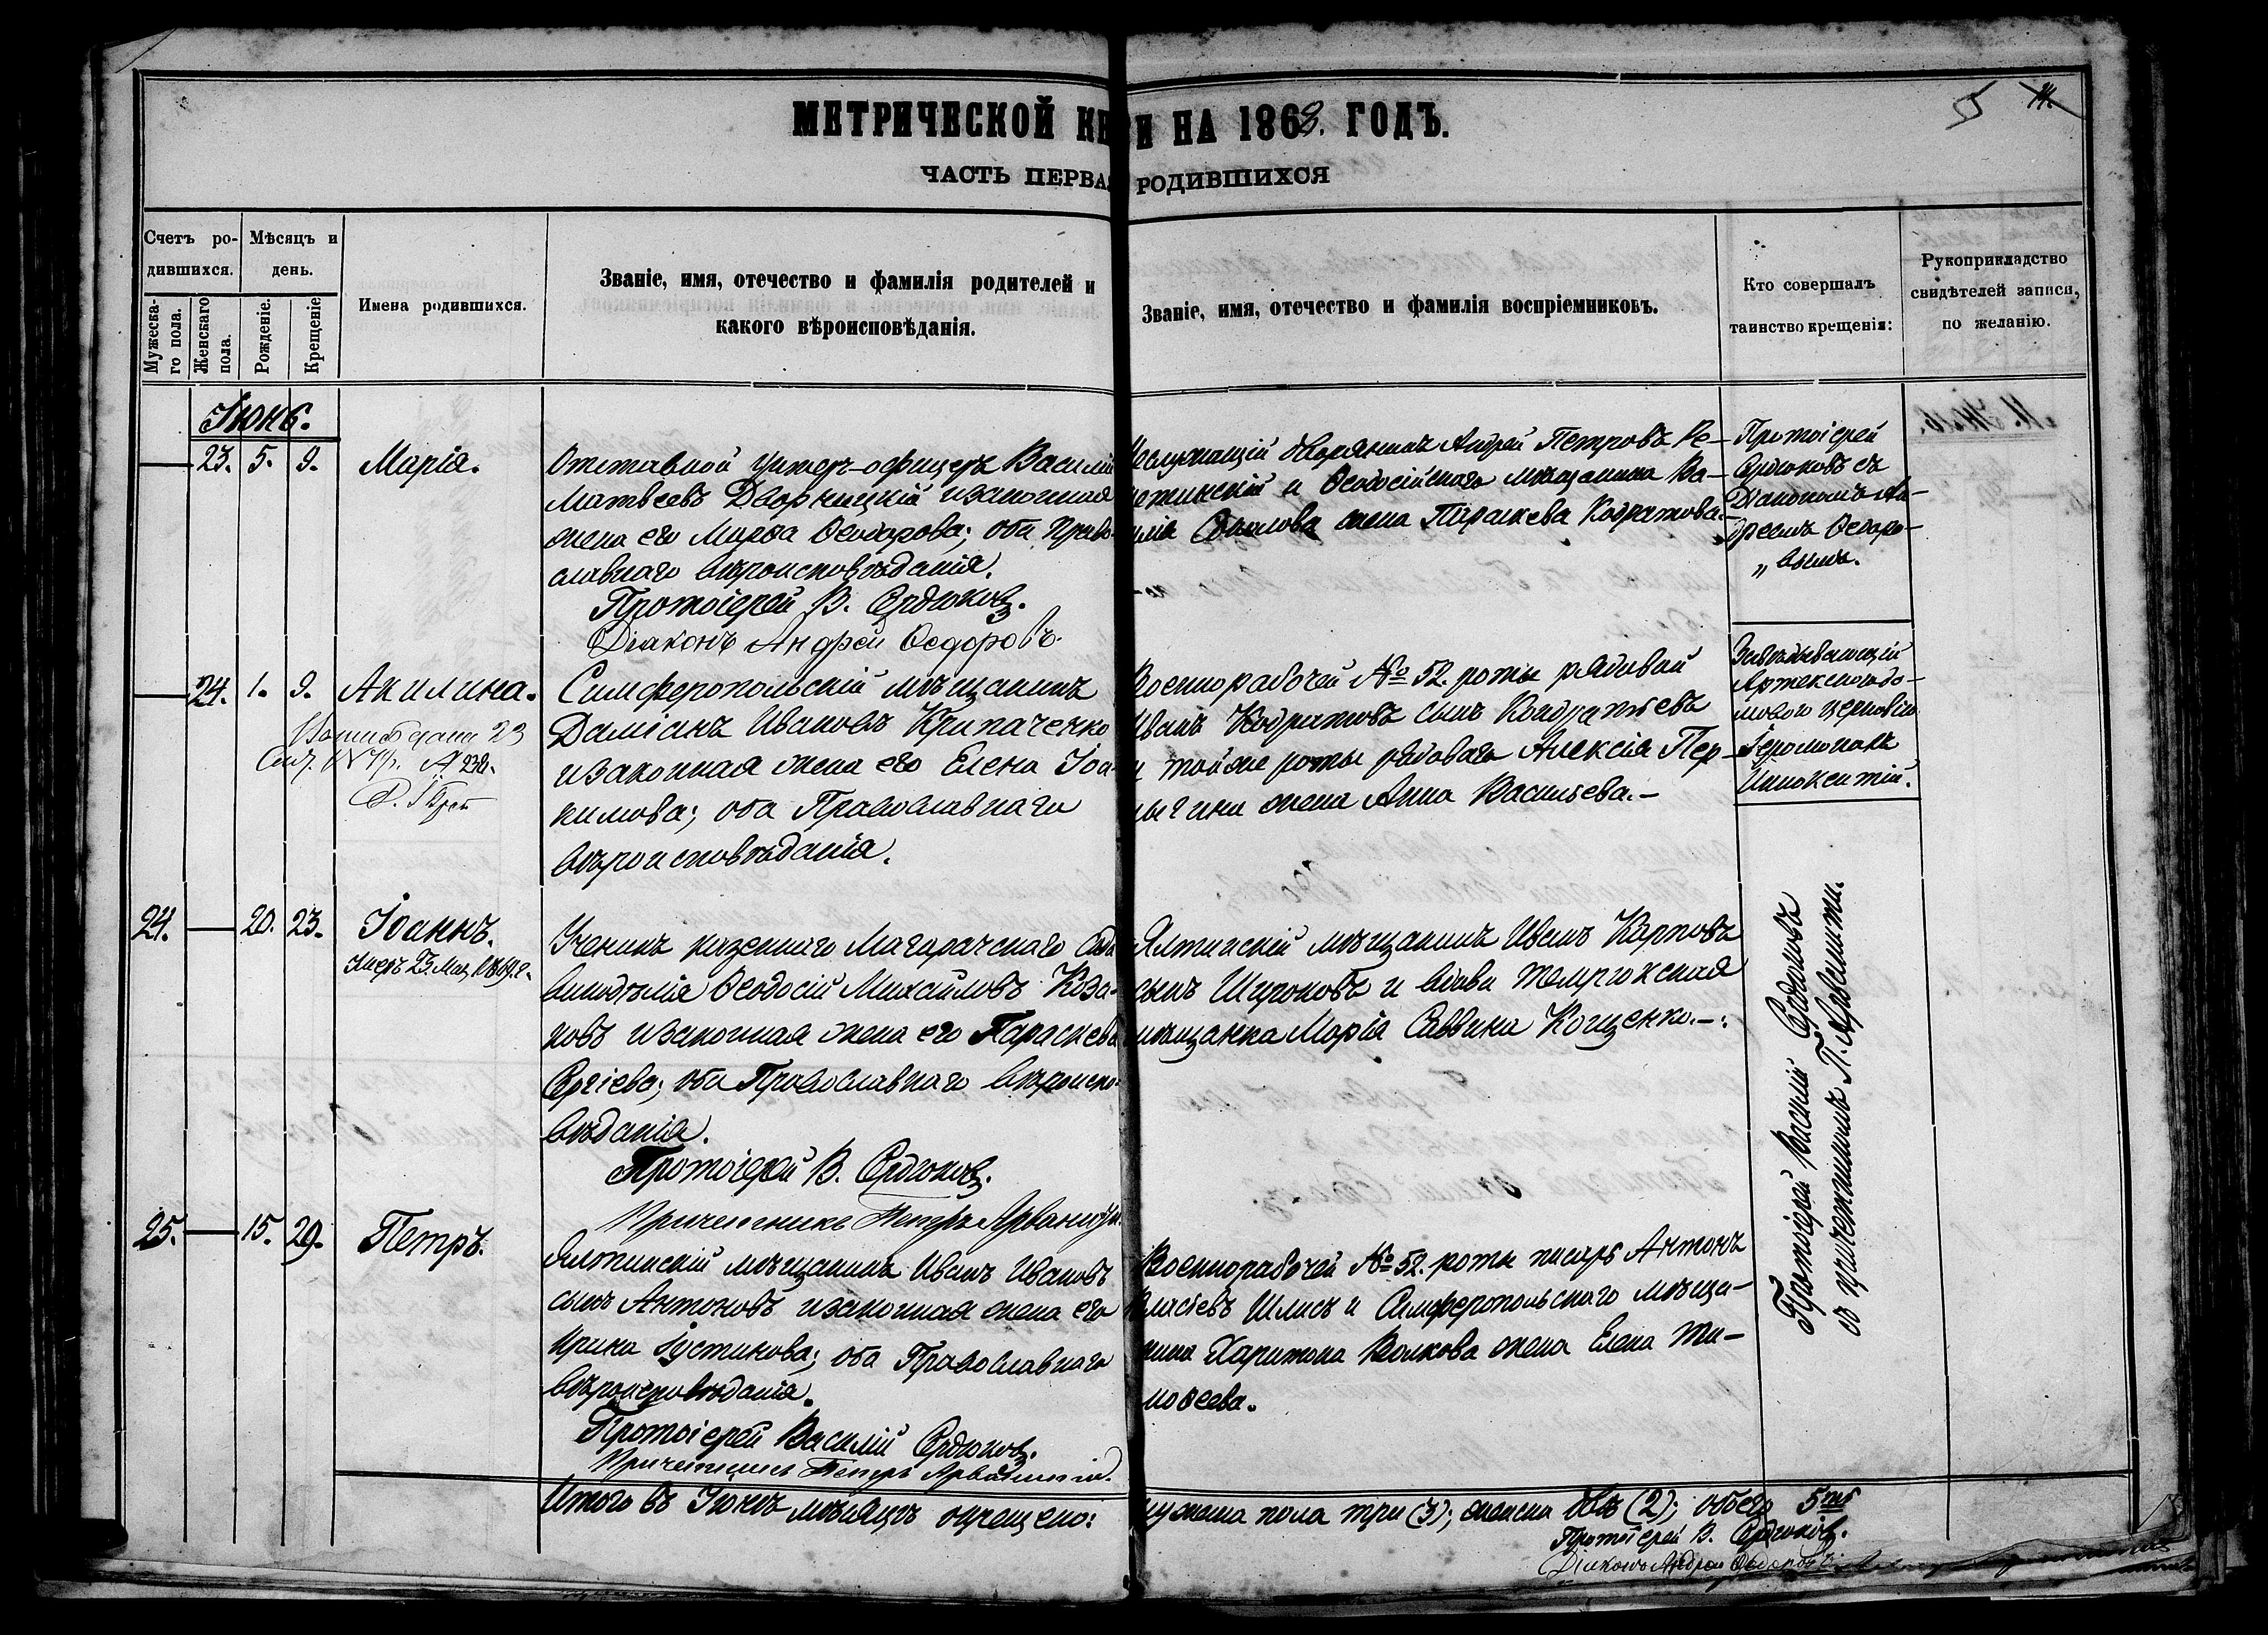 МЕТРИЧЕСКОЙ КН И НА 1868. ГОДЪ.
ЧАСТЬ ПЕРВАЯ РОДИВШИХСЯ
55
Счетъ ро-
дившихся.
Мужеска-
го пола.
Женскаго
пола.
Мѣсяцъ и
день.
Рожденіе.
Крещеніе
Имена родившихся.
Званіе, имя, отечество и фамилія родителей и
какого вѣроисповѣданія.
Званіе, имя, отечество и фамилія воспріемниковъ.
Кто совершалъ
таинство крещенія:
Рукоприкладство
свидѣтелей записи,
по желанію.
Іюнь.
23. 5. 9. Марія.
Отставной унтеръ-офицеръ Василій
Матвеевъ Дворницкій изаконная
жена его Марѳа Ѳеодорова; оба Право-
славнаго вѣроисповѣданія.
Протоіерей В. Сердюковъ.
Діаконъ Андрей Ѳедоровъ.
Неслужащій дворянинъ Андрей Петровъ Ре-
и Ѳеодосійскаго мѣщанина Ва-
жена Параскева Кодратова.
Протоіерей
Сердюковъ съ
Діакономъ Ан-
дреемъ Ѳедоро-
„ вымъ.
24. 1. 9. Акилина.
Симферопольскій мѣщанинъ
Даміанъ Ивановъ Крипаченко
изаконная жена его Елена Іоа-
кимова; оба Православнаго
вѣроисповѣданія.
Военнорабочей № 52. роты рядовой
Иванъ Кодратовъ сынъ Кондратьевъ
и тойже роты рядоваго Алексія Пер-
ина жена Анна Васильева.-
Завѣдывающій
Артекскою до-
мовою церковію
Іеромонахъ
Иннокентій.
24. 20. 23. Іоаннъ.
Умеръ 23 1869 г.
Ученикъ казеннаго Магарачскаго
винодѣлія Ѳеодосій Михайловъ Коза-
ковъ изаконная жена его Параскева
Сергіева; оба Православнаго вѣроиспо-
вѣданія.
Протоіерей В. Сердюковъ.
Причетникъ Петръ
Ялтинскій мѣщанинъ Иванъ Карповъ
сынъ Шуроновъ и вдова Темрюкская
мѣщанка Марія Саввина Кощенко.-:
Протоіерей Василій Сердюковъ
съ причетникомъ П.
25. 15. 29. Петръ.
Ялтинскій мѣщанинъ Иванъ Ивановъ
сынъ Антоновъ изаконная жена его
Ирина Іустинова; оба Православнаго
вѣроисповѣданія.
Протоіерей Василій Сердюковъ.
Причетникъ Петръ
Военнорабочей № 52. роты писарь Антонъ
Власіевъ Шлисъ и Симферопольскаго мѣща-
нина Харитона Волкова жена Елена Ти-
моѳеева.
Итого въ Іюнѣ мѣсяцѣ окрещено: мужска пола три (3); женска двѣ (2); обоего 5ть
Протоіерей В. Сердюковъ.
Діаконъ Андрей Ѳедоровъ